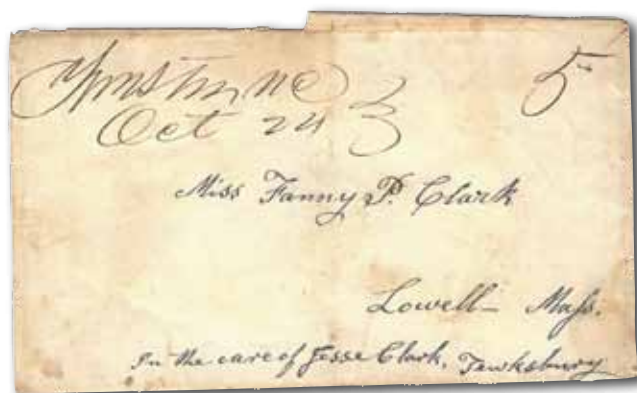 5
Oct 24
Miss Fanny P. Clark
Lowell Mass.
In the care of Jesse Clark, Tewksbury